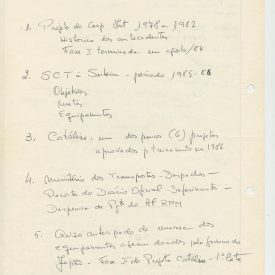 1. Projeto de Coop Int 1978 a 1982
Histórico dos antecedentes
Fase I terminada em agosto/84
2. SCT - período 1985-88
Objetivos
metas
Equipamentos
3. Catálise: um dos poucos (6) projetos
aprovados p/ treinamento em 1986
4. Ministério dos Transportes - Despachos -
Recorte do Diário Oficial - Deferimento -
Dispensa de Pgto do AFRMM
5. Aviso antecipado de remessa dos
equipamentos a serem doados pelo governo do
Japão. Fase II do Projeto Catálise - 1º Lote